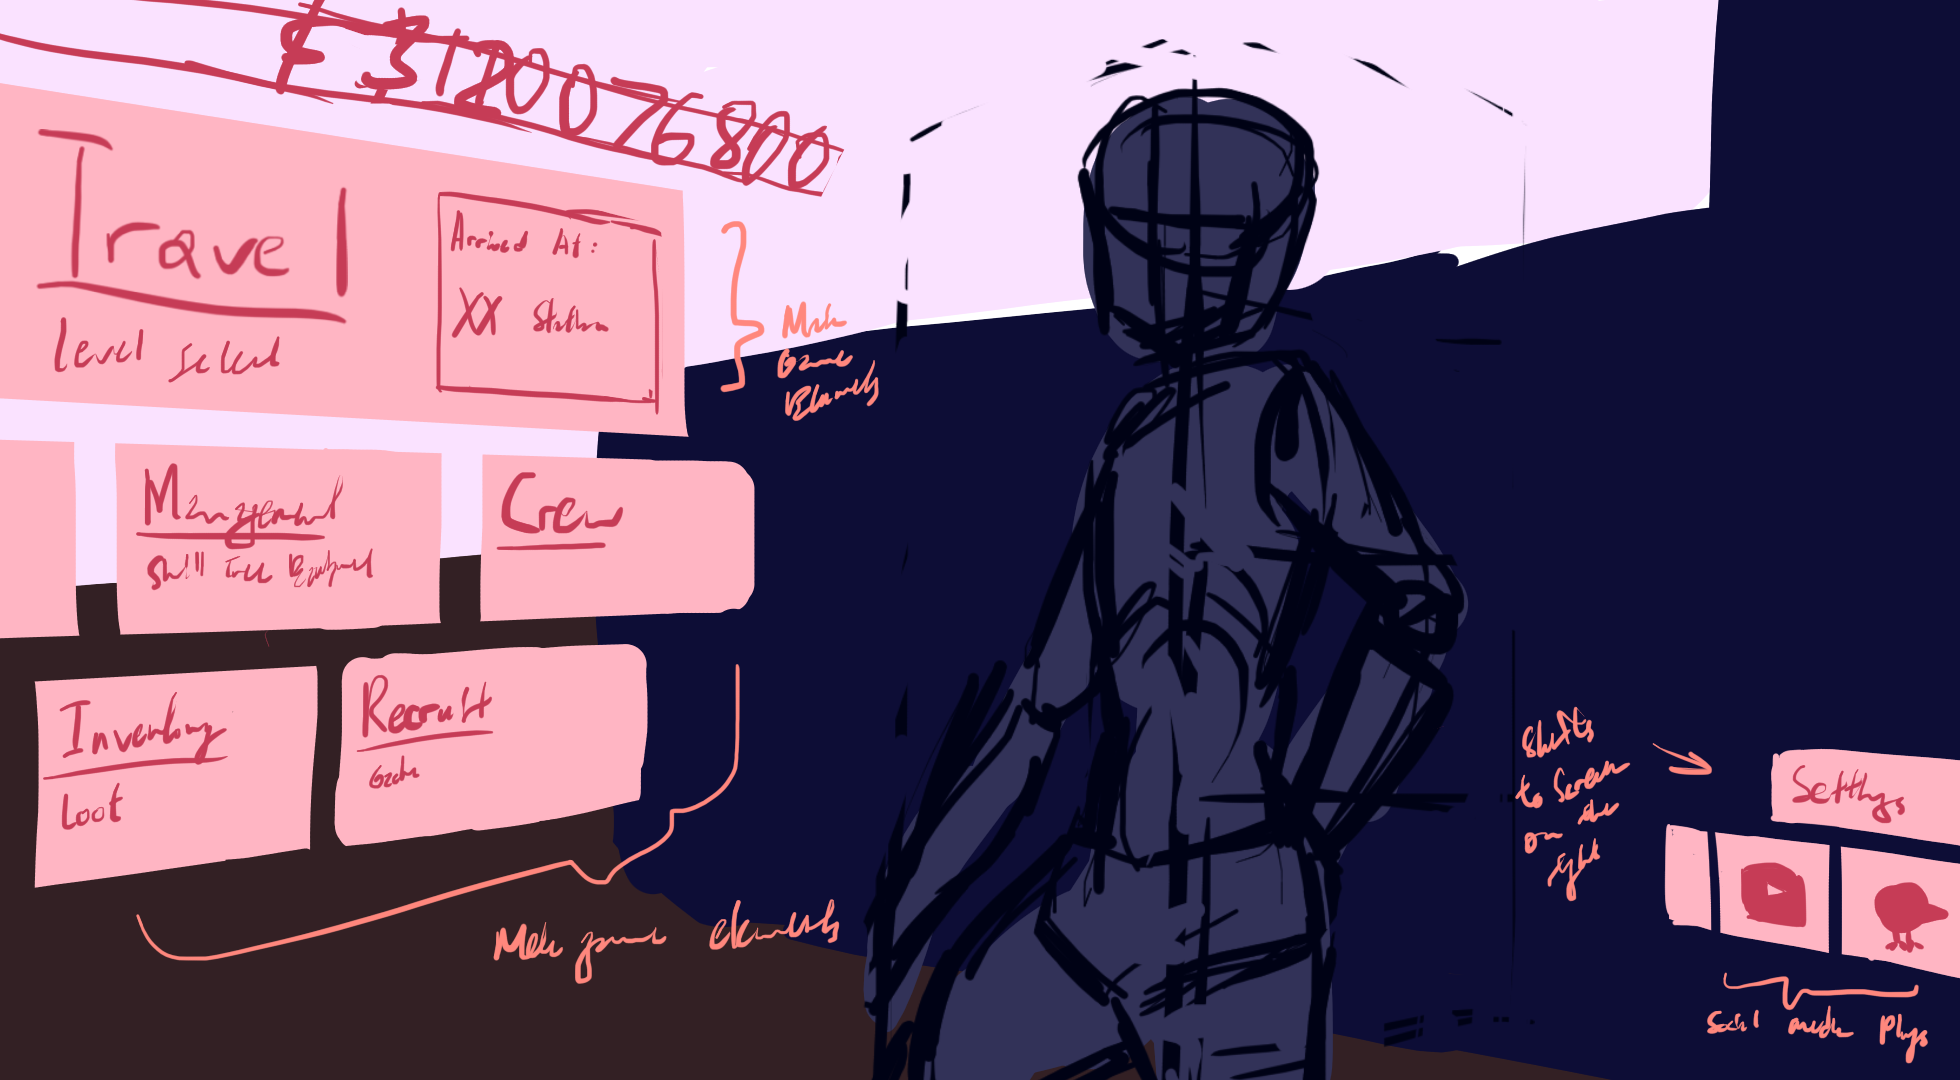 £ 3120076800
Travel
level select
Arrived At:
XX Station
Main
Game
Elements
Management
Skill Tree Equipment
Crew
Inventory
Loot
Recruit
Gacha
Main game elements
Shifts
to Screen
on the
right
Settings
Social media Plugs